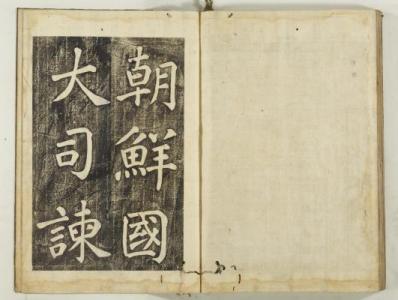 朝鮮國
大司諫